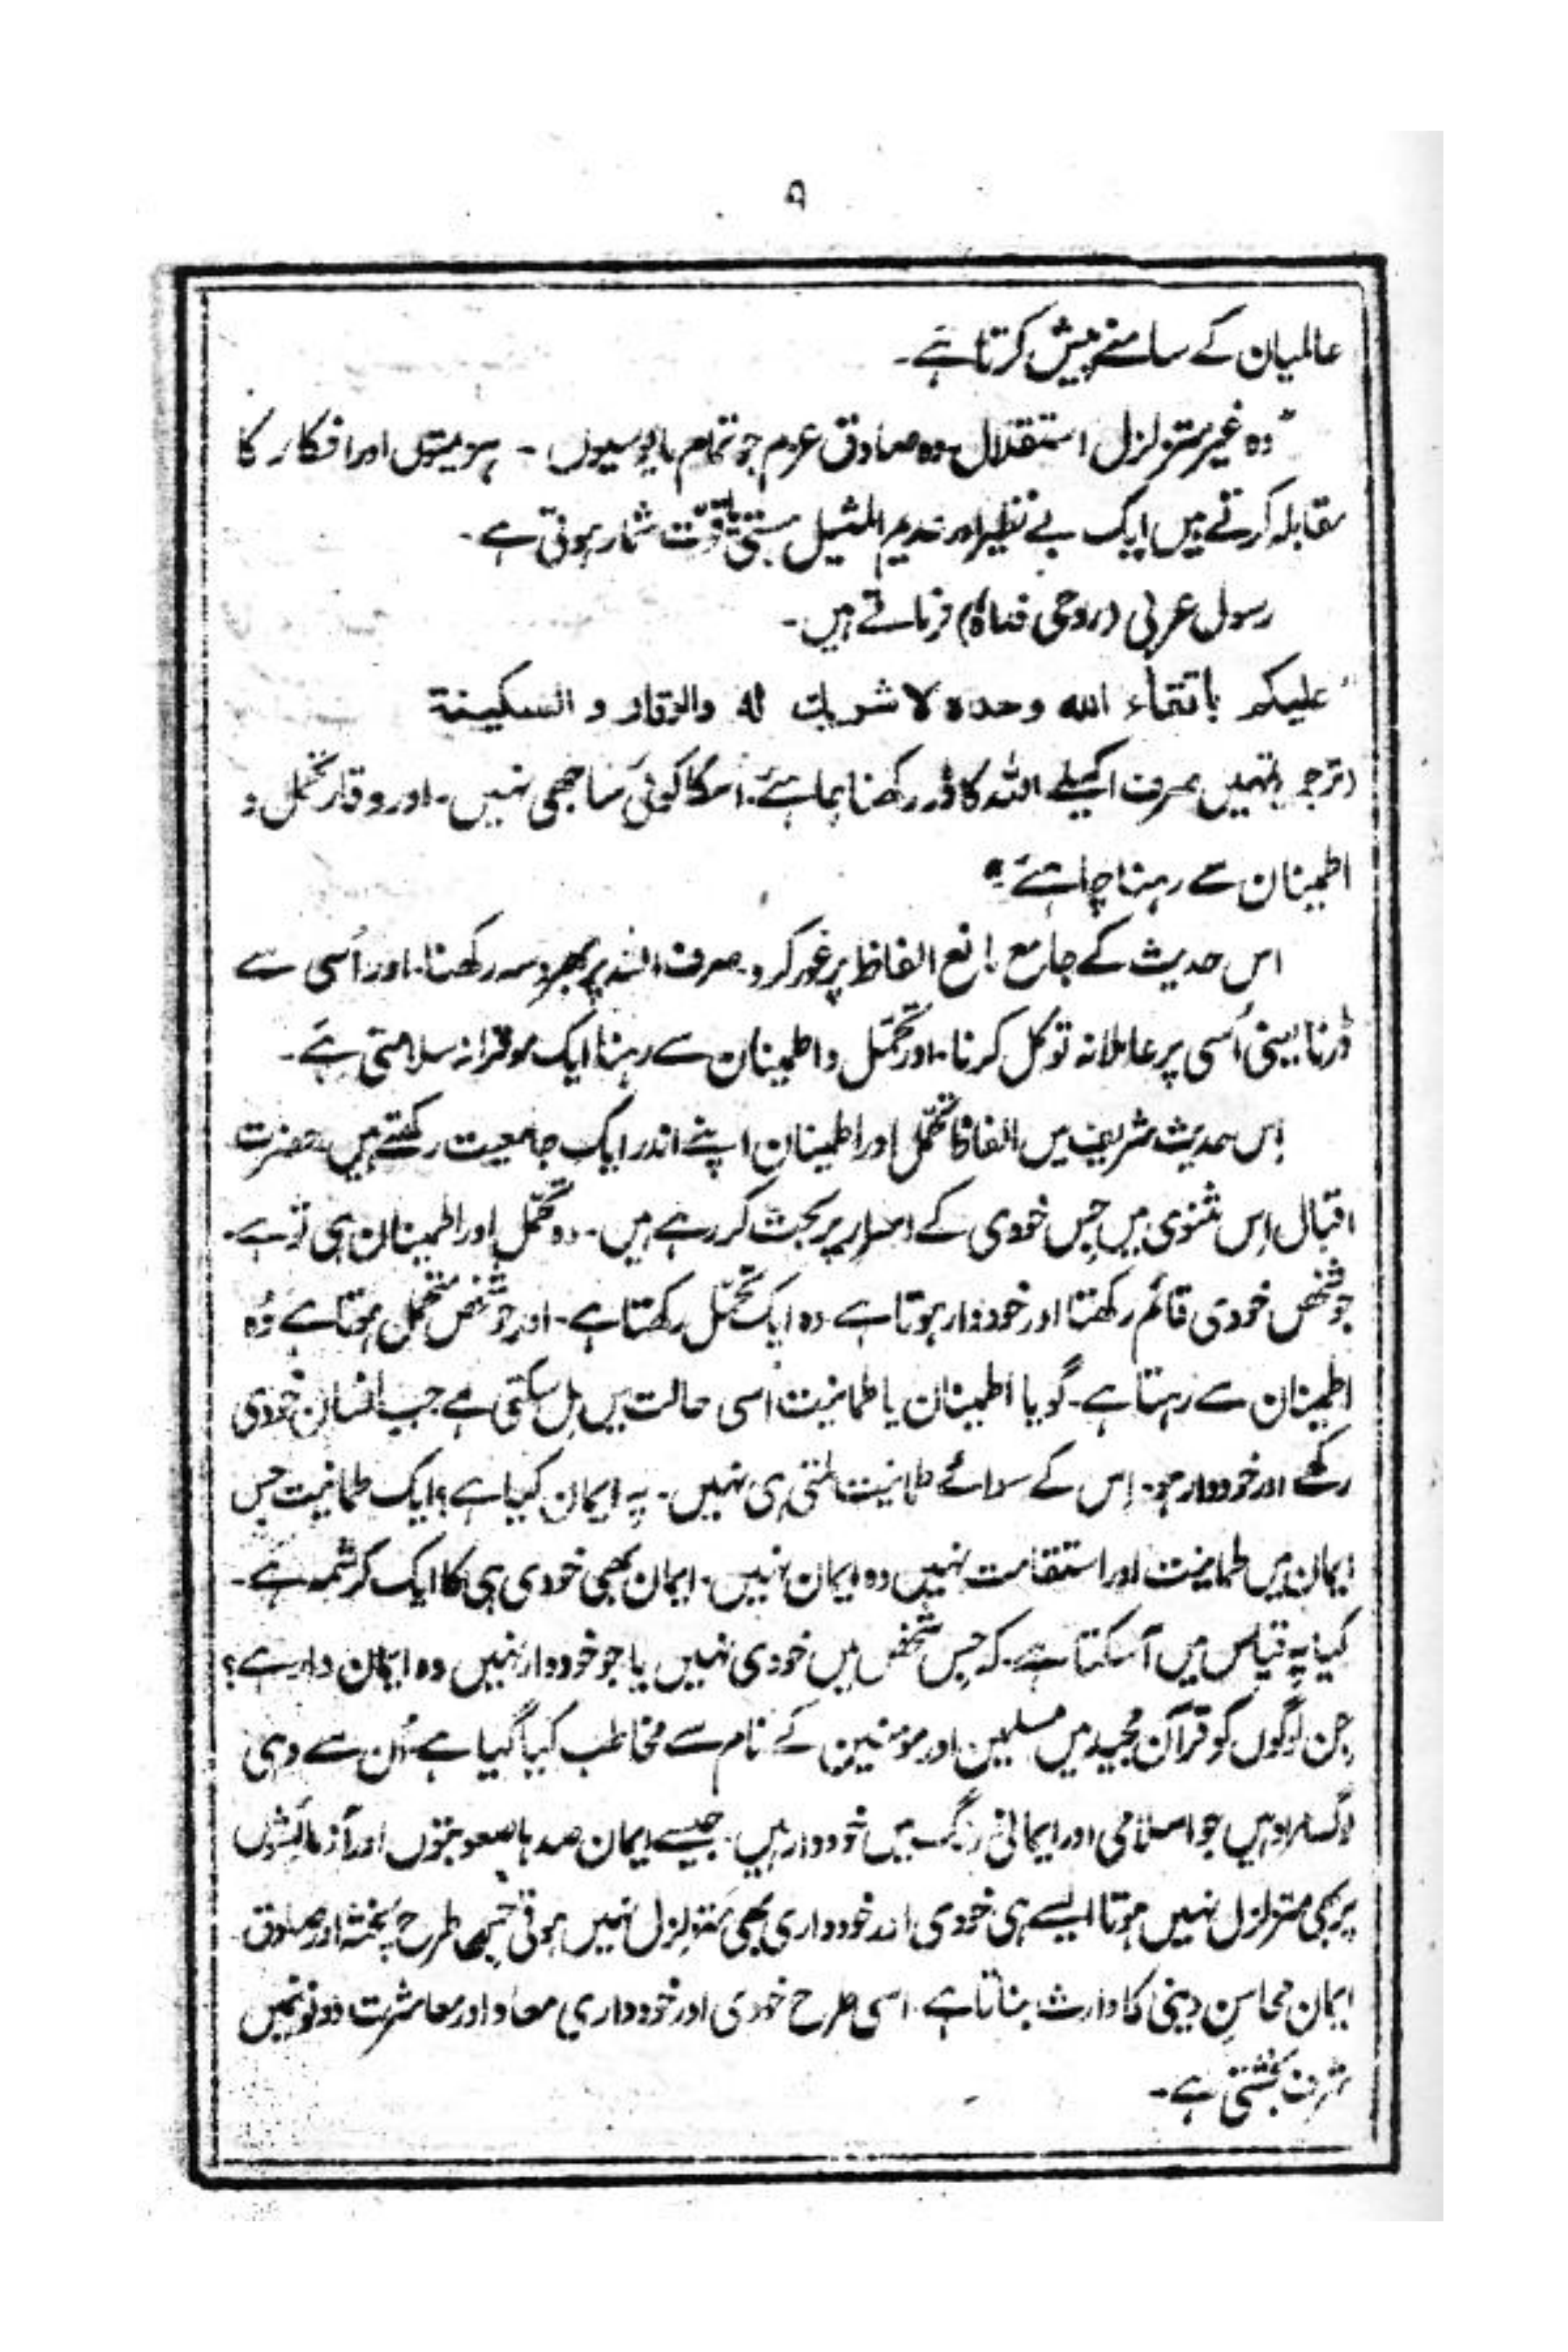 ۹
عالمیان کے سامنے پیش کرتا ہے۔
"وہ غیر متزلزل استقلال۔ وہ صادق عزم جو تمام مایوسیوں ۔ ہزیمتوں اور افکار کا
مقابلہ کرتے ہیں ایک بے نظیر اور عدیم المثیل ہستی یا قوّت شمار ہوتی ہے۔
رسول عربی (روحی فداہٗ) فرماتے ہیں۔
"علیکم باتقاء الله وحده لا شریک له والوقار و السکینة
(ترجمہ) تمہیں صرف اکیلے اللہ کا ڈر رکھنا چاہئے۔ اسکا کوئی ساجھی نہیں۔ اور وقار تحمل و
اطمینان سے رہنا چاہئے"
اس حدیث کے جامع مانع الفاظ پر غور کرو۔ صرف اللہ پر بھروسہ رکھنا۔ اور اُسی سے
ڈرنا یعنی اُسی پر عاملانہ توکل کرنا۔ اور تحمّل و اطمینان سے رہنا ایک موقرانہ سلامتی ہے۔
اِس حدیث شریف میں الفاظ تحمّل اور اطمینان اپنے اندر ایک جامعیت رکھتے ہیں۔ حضرت
اقبال اِس مثنوی میں جِس خودی کے اسرار پر بحث کر رہے ہیں۔ وہ تحمّل اور اطمینان ہی تو ہے۔
جو شخص خودی قائم رکھتا اور خوددار ہوتا ہے۔ وہ ایک تحمّل رکھتا ہے۔ اور جو شخص متحمل ہوتا ہے وُہ
اطمینان سے رہتا ہے۔ گویا اطمینان یا طمانیت اُسی حالت میں مِل سکتی ہے جب انسان خودی
رکھے اور خوددار ہو۔ اِس کے سوائے طمانیت ملتی ہی نہیں۔ یہ ایمان کیا ہے؟ ایک طمانیت جس
ایمان میں طمانیت اور استقامت نہیں وہ ایمان نہیں۔ ایمان بھی خودی ہی کا ایک کرشمہ ہے۔
کیا یہ قیاس میں آسکتا ہے۔ کہ جِس شخص میں خودی نہیں یا جو خوددار نہیں وہ ایمان دار ہے؟
جِن لوگوں کو قرآن مجید میں مسلمین اور مومنین کے نام سے مخاطب کیا گیا ہے اُن سے وہی
لوگ مراد ہیں جو اسلامی اور ایمانی رنگ میں خوددار ہیں۔ جیسے ایمان صدہا صعوبتوں اور آزمائشوں
پر بھی متزلزل نہیں ہوتا ایسے ہی خودی اور خودداری بھی متزلزل نہیں ہوتی جس طرح پختہ اور صادق
ایمان محاسنِ دینی کا وارث بناتا ہے۔ اسی طرح خودی اور خودداری معاد اور معاشرت دونو میں
شرف بخشتی ہے۔